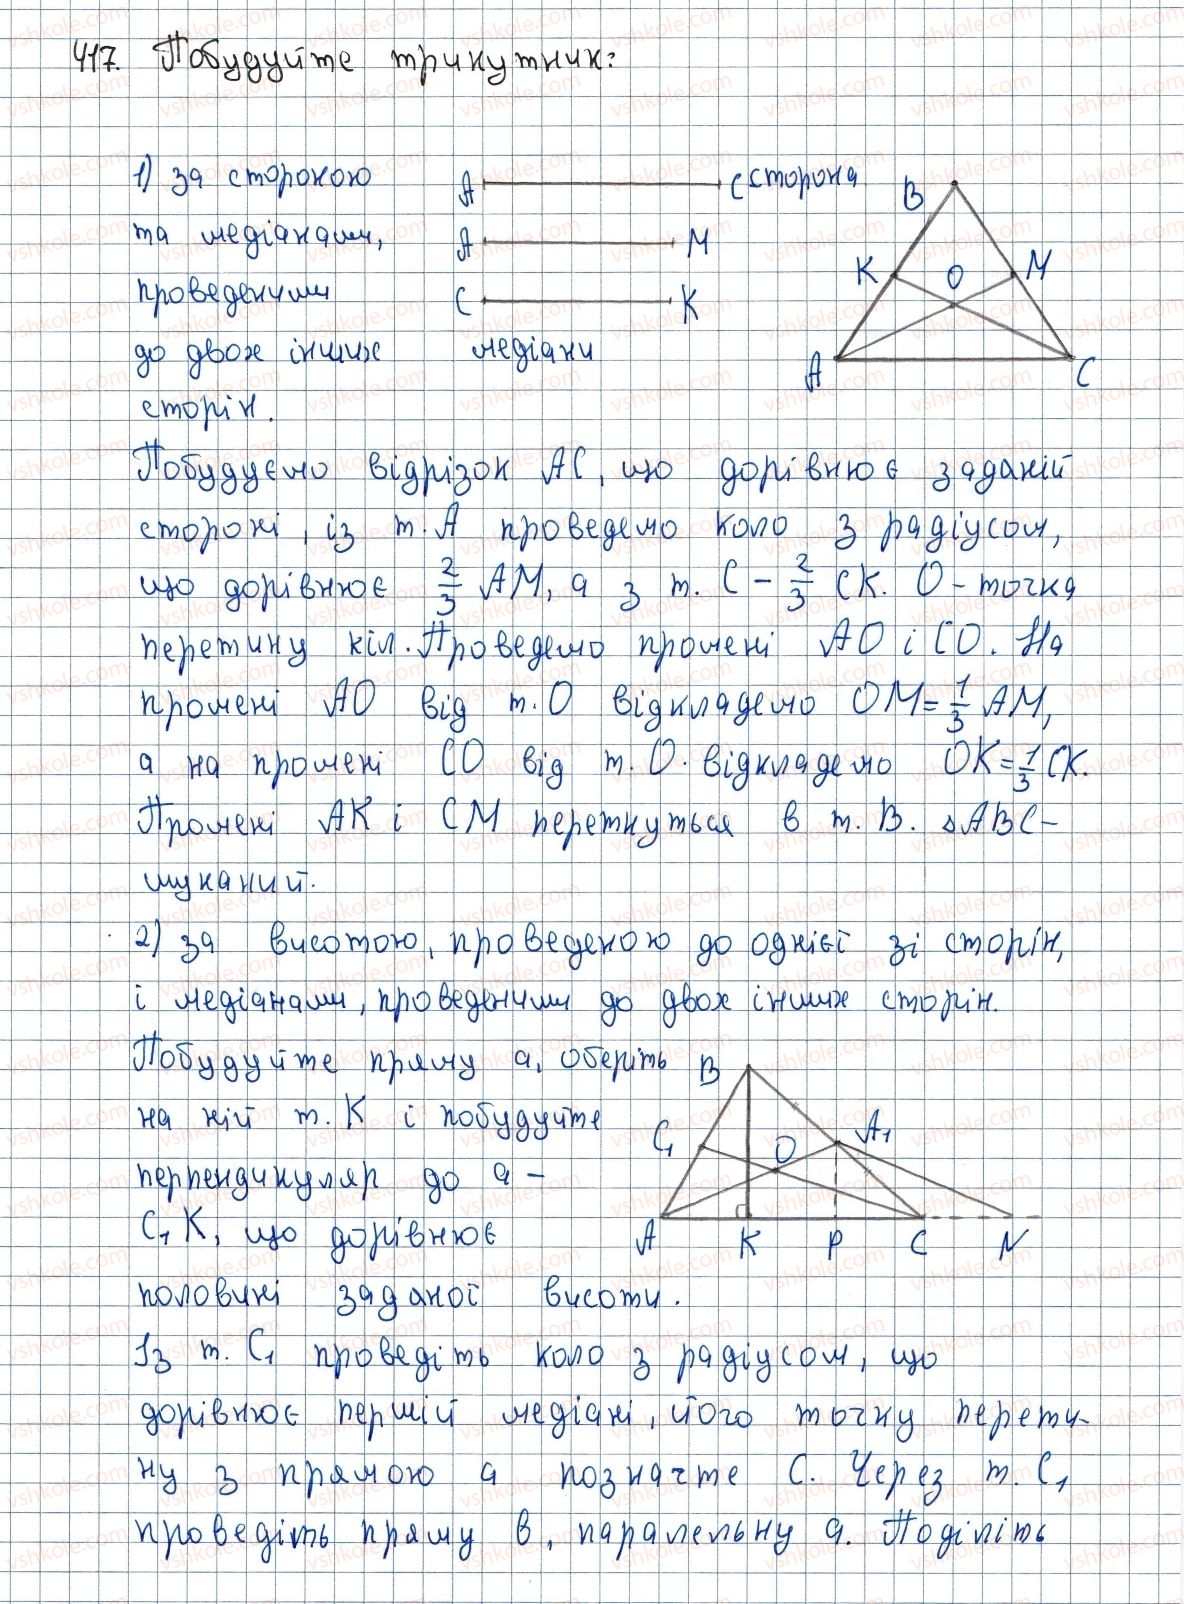 417. Побудуйте трикутник:
1) за стороною
та медіанами,
проведеними
до двох інших
сторін.
A C сторона
A M
C K
медіани
B
K O M
A C
Побудуємо відрізок AC, що дорівнює заданій
стороні, із т. A проведемо коло з радіусом,
що дорівнює 2/3 AM, а з т. C - 2/3 CK. O - точка
перетину кіл. Проведемо промені AO і CO. На
промені AO від т. O відкладемо OM = 1/3 AM,
а на промені CO від т. O відкладемо OK = 1/3 CK.
Промені AK і CM перетнуться в т. B. ΔABC -
шуканий.
2) за висотою, проведеною до однієї зі сторін,
і медіанами, проведеними до двох інших сторін.
Побудуйте пряму a, оберіть
на ній т. K і побудуйте
перпендикуляр до a -
C₁K, що дорівнює
половині заданої висоти.
B
C₁ O A₁
A K P C N
Із т. C₁ проведіть коло з радіусом, що
дорівнює першій медіані, його точку перети-
ну з прямою a позначте C. Через т. C₁
проведіть пряму b, паралельну a. Поділіть